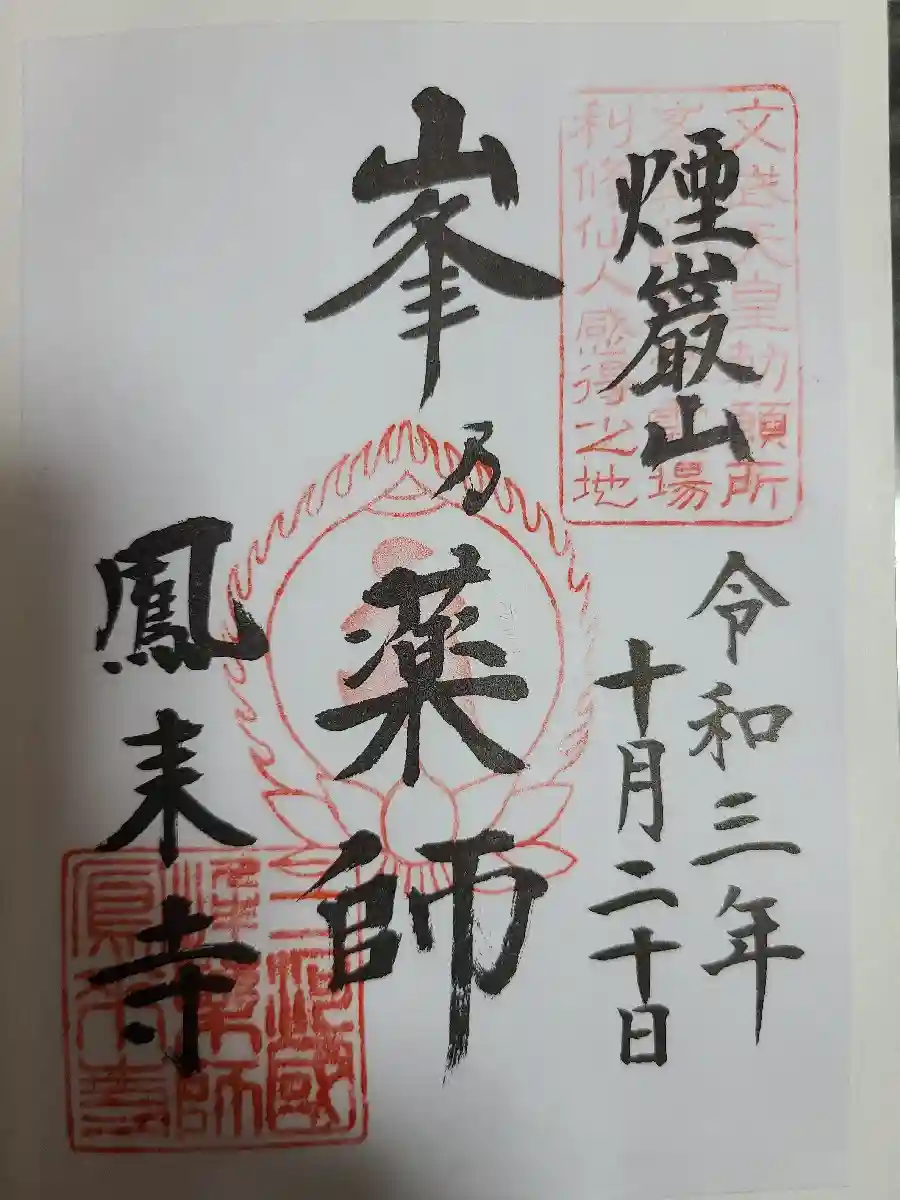 煙巖山
文武天皇勅願所
場
利修仙人感得之地
令和三年
十月二十日
峯乃薬師
鳳来寺
三河國
峯薬師
鳳来寺